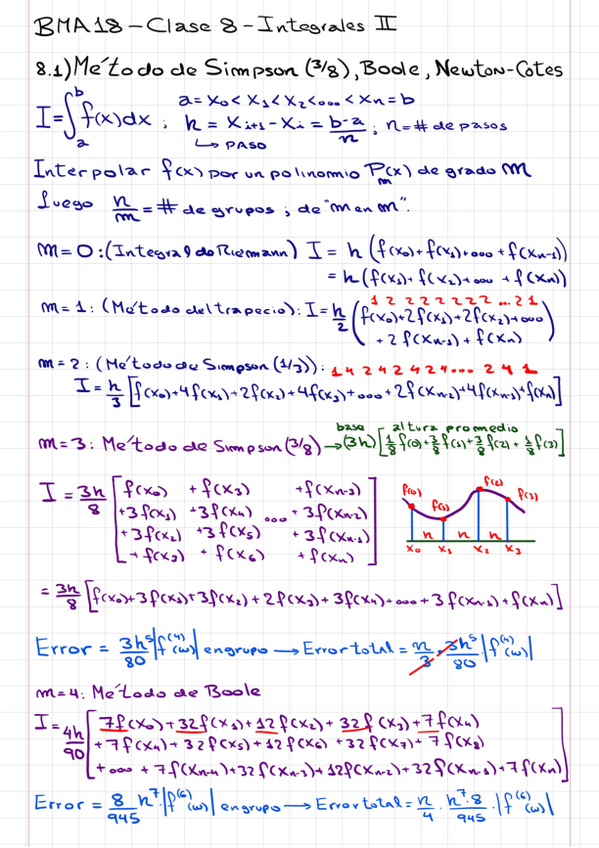 BMA18 – Clase 8 – Integrales II
8.1) Método de Simpson (3/8), Boole, Newton-Cotes
I = ∫_a^b f(x)dx ; a = x₀ < x₁ < x₂ < ... < xₙ = b
h = x_{i+1} - x_i = (b-a)/n ; n = # de pasos
↳ PASO
Interpolar f(x) por un polinomio P_m(x) de grado m
Luego n/m = # de grupos ; de "m en m".
m = 0 : (Integral de Riemann) I = h (f(x₀) + f(x₁) + ... + f(x_{n-1}))
= h (f(x₁) + f(x₂) + ... + f(xₙ))
1 2 2 2 2 2 2 2 ... 2 1
m = 1 : (Método del trapecio) : I = h/2 (f(x₀) + 2f(x₁) + 2f(x₂) + ...
+ 2f(x_{n-1}) + f(xₙ))
m = 2 : (Método de Simpson (1/3)) : 1 4 2 4 2 4 2 4 ... 2 4 1
I = h/3 [f(x₀) + 4f(x₁) + 2f(x₂) + 4f(x₃) + ... + 2f(x_{n-2}) + 4f(x_{n-1}) + f(xₙ)]
base altura promedio
m = 3 : Método de Simpson (3/8) → (3h) [1/8 f(0) + 3/8 f(1) + 3/8 f(2) + 1/8 f(3)]
I = 3h/8 [f(x₀) + f(x₃) + f(x_{n-3})
+ 3f(x₁) + 3f(x₄) ... + 3f(x_{n-2})
+ 3f(x₂) + 3f(x₅) + 3f(x_{n-1})
+ f(x₃) + f(x₆) + f(xₙ)]
f(0) f(1) f(2) f(3)
h h h
x₀ x₁ x₂ x₃
= 3h/8 [f(x₀) + 3f(x₁) + 3f(x₂) + 2f(x₃) + 3f(x₄) + ... + 3f(x_{n-1}) + f(xₙ)]
Error = 3h⁵/80 |f⁽⁴⁾(w)| en grupo → Error total = n/3 · 3h⁵/80 |f⁽⁴⁾(w)|
m = 4 : Método de Boole
I = 4h/90 [7f(x₀) + 32f(x₁) + 12f(x₂) + 32f(x₃) + 7f(x₄)
+ 7f(x₄) + 32f(x₅) + 12f(x₆) + 32f(x₇) + 7f(x₈)
+ ... + 7f(x_{n-4}) + 32f(x_{n-3}) + 12f(x_{n-2}) + 32f(x_{n-1}) + 7f(xₙ)]
Error = 8/945 h⁷ |f⁽⁶⁾(w)| en grupo → Error total = n/4 · h⁷·8/945 · |f⁽⁶⁾(w)|